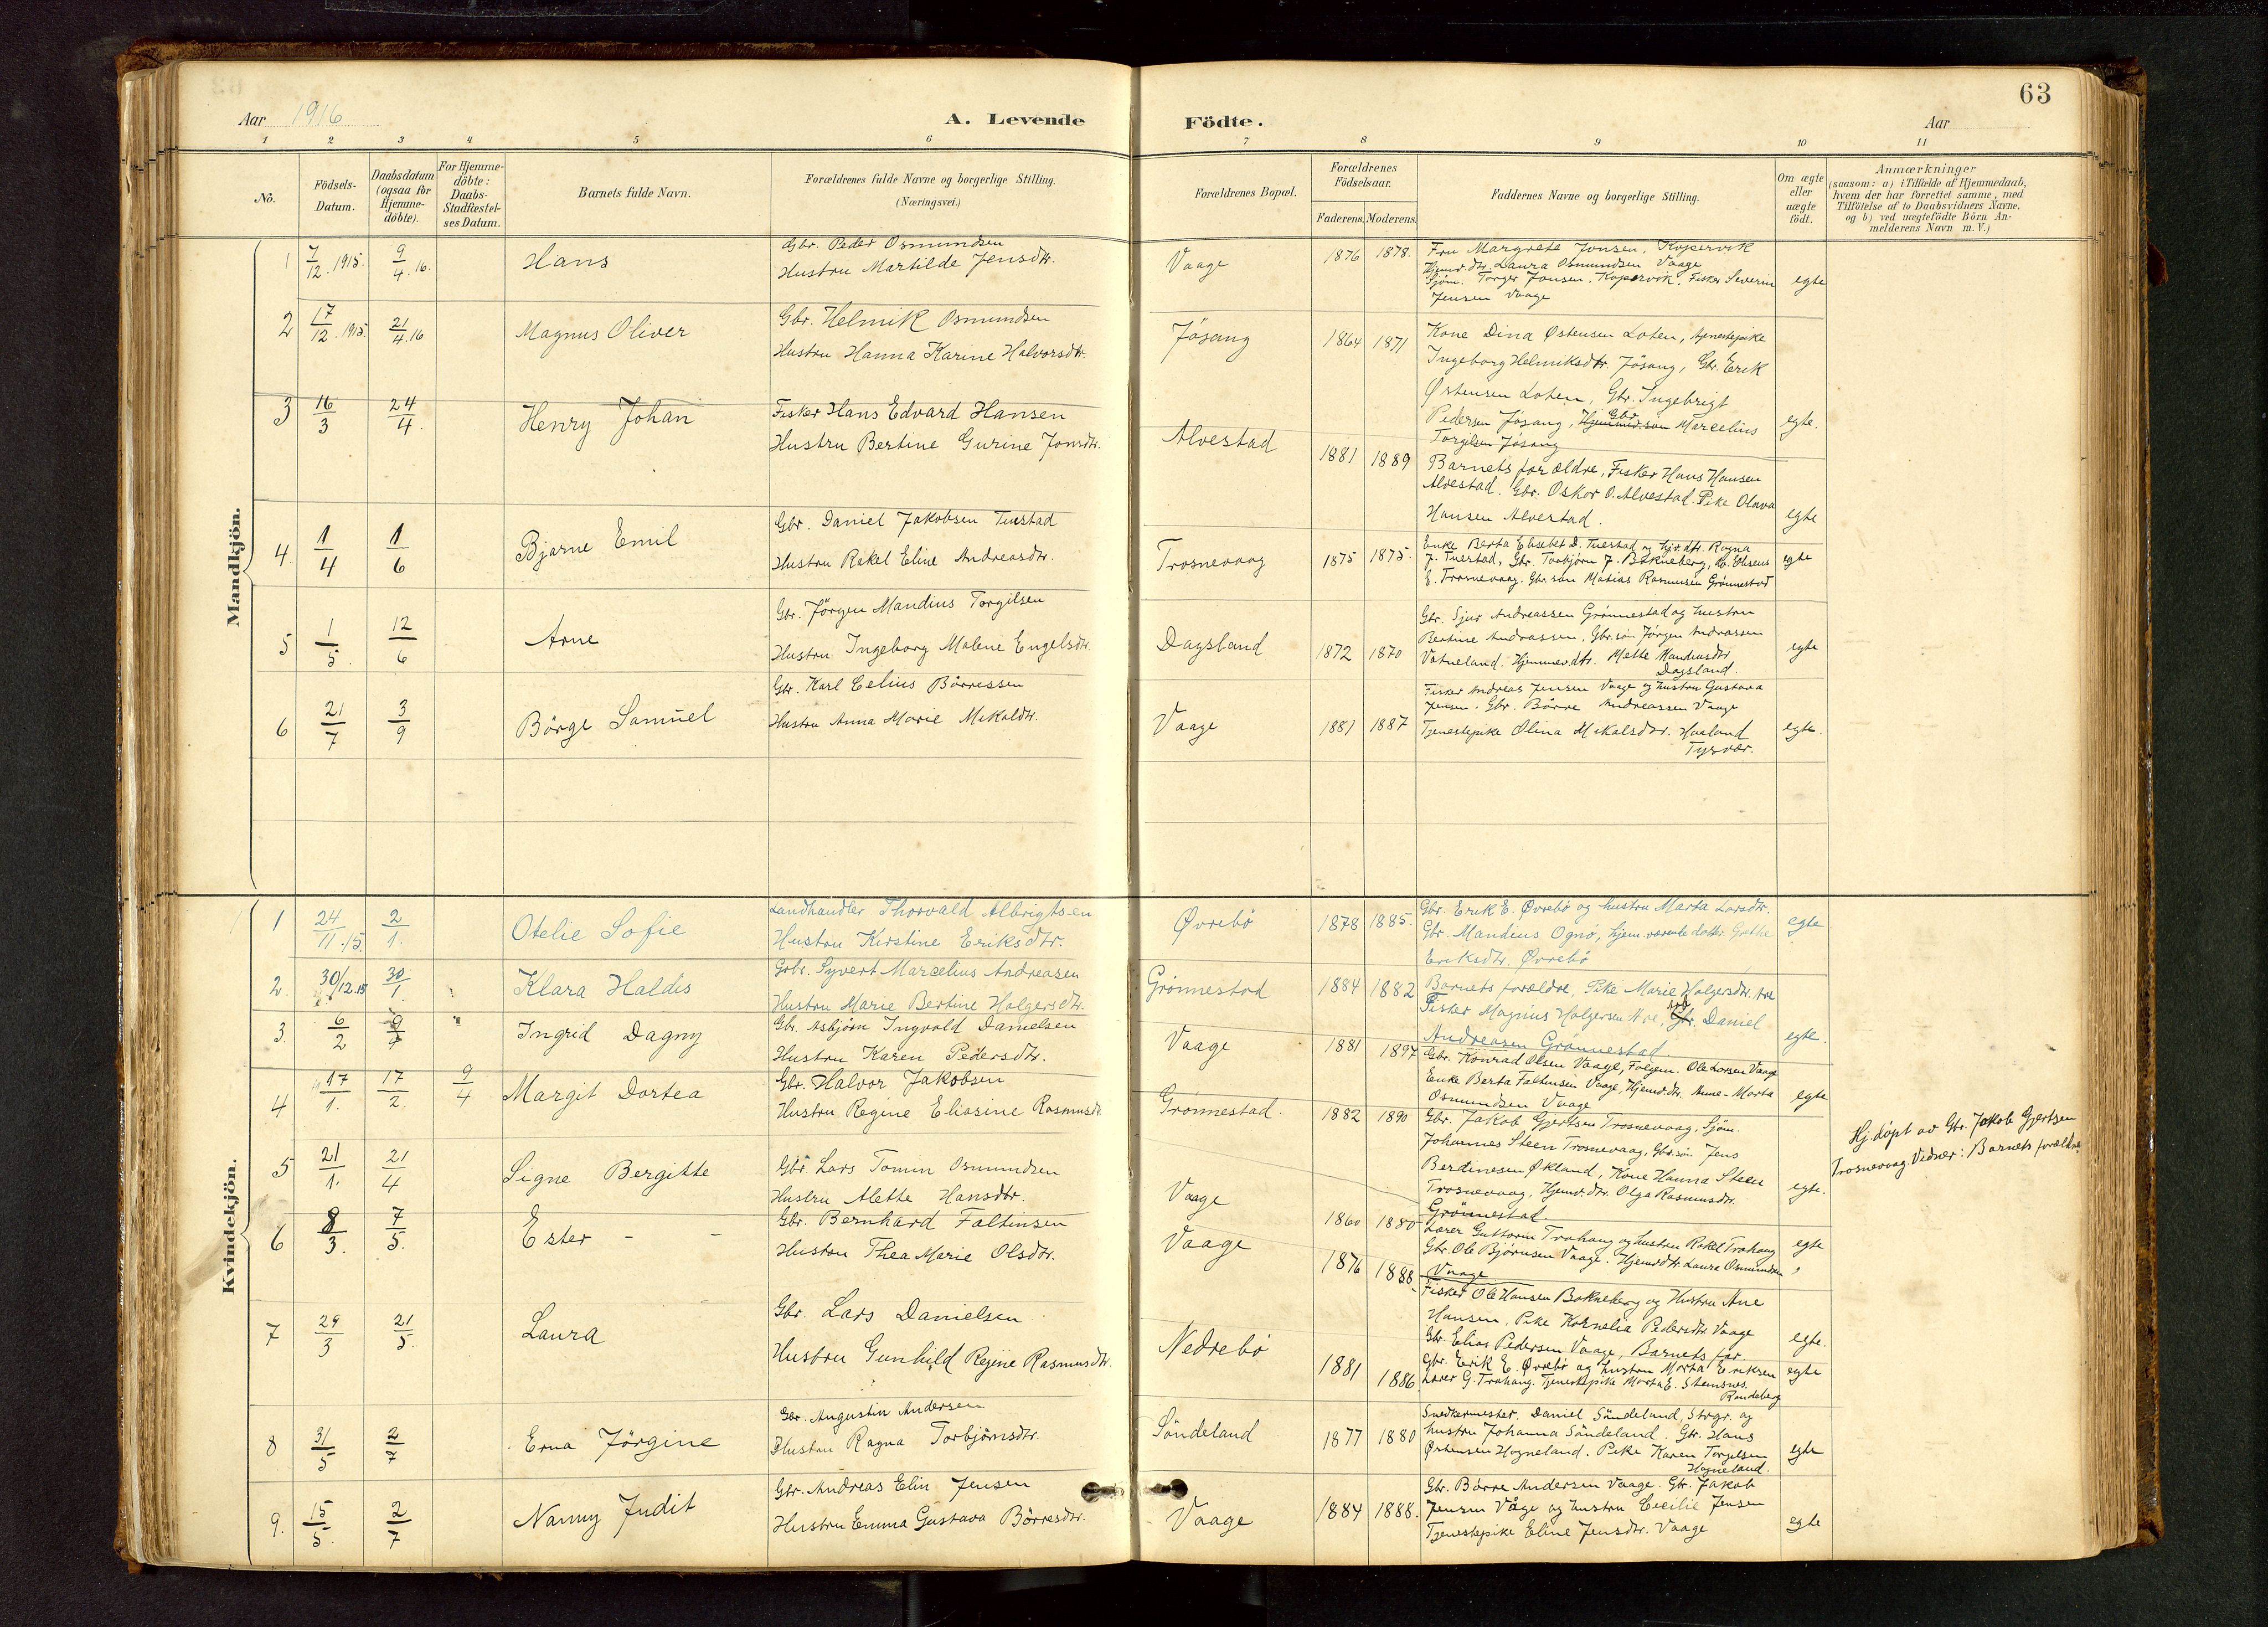 63
Aar 1916
A. Levende
Födte.
Aar
1 2 3 4 5 6 7 8 9 10 11
No.
Födsels-
Datum.
Daabsdatum
(ogsaa for
Hjemme-
döbte).
For Hjemme-
döbte:
Daabs-
Stadfæstel-
ses Datum.
Barnets fulde Navn.
Forældrenes fulde Navne og borgerlige Stilling.
(Næringsvei.)
Forældrenes Bopæl.
Forældrenes
Födselsaar.
Faderens. Moderens.
Faddernes Navne og borgerlige Stilling.
Om ægte
eller
uægte
födt.
Anmærkninger
(saasom: a) i Tilfælde af Hjemmedaab,
hvem der har forrettet samme, med
Tilföielse af to Daabsvidners Navne,
og b) ved uægtefödte Börn An-
melderens Navn m. V.)
Mandkjön.
1 7/12.1915. 9/4.16. Hans
Gbr. Peder Osmundsen
Hustru Martilde Jensdtr.
Vaage 1876 1878.
Fru Margrete Jonsen, Kopervik
Hjemv. dtr. Laura Osmundsen Vaage
Sjöm. Torger Jonsen. Kopervik. Fisker Severin
Jensen Vaage
egte
2 17/12.1915. 21/4.16 Magnus Oliver
Gbr. Helmik Osmundsen
Hustru Hanna Karine Halvorsdtr.
Jösang 1864 1871
Kone Dina Østensen Loten, tjenestepike
Ingeborg Helmiksdtr. Jösang, Gbr. Erik
Østensen Loten, Gbr. Ingebrigt
Pedersen Jösang, Gbr. Marcelius
Torgelsen Jösang
egte.
3 16/3 24/4. Henry Johan
Fisker Hans Edvard Hansen
Hustru Bertine Gurine Jonsdtr.
Alvestad 1881 1889
Barnets forældre, Fisker Hans Hansen
Alvestad. Gbr. Oskar O. Alvestad. Pike Olava
Hansen Alvestad.
egte
4. 1/4 1/6 Bjarne Emil
Gbr. Daniel Jakobsen Tuestad
Hustru Rakel Eline Andreasdtr.
Trosnevaag 1875 1875.
Enke Berta Elisabet D. Tuestad og hjv. dtr. Ragna
J. Tuestad, Gbr. Torbjörn J. Bokneberg,
E. Trosnevaag. Gbr. sön Matias Rasmussen Grönnestad
egte
5 1/5. 12/6 Arne
Gbr. Jörgen Mandius Torgilsen
Hustru Ingeborg Malene Engelsdtr.
Dagsland 1872 1870
Gbr. Sjur Andreassen Grönnestad og hustru
Bertine Andreassen. Gbr. sön Jörgen Andreassen
Vatneland. Hjemmev. dtr. Mette Mandiusdtr
Dagsland.
egte
6 21/7 3/9 Börge Samuel
Gbr. Karl Celius Börresen
Hustru Anna Marie Mikaldtr.
Vaage 1881 1887
Fisker Andreas Jensen Vaage og hustru Gustava
Jensen. Gbr. Börre Andreassen Vaage
Tjenestepike Olina Mikalsdtr. Haaland
Tysvær.
egte.
Kvindekjön.
1 24/11.15. 2/1. Otelie Sofie
Landhandler Thorvald Albrigtsen
Hustru Kirstine Eriksdtr.
Øvrebö 1878 1885.
Gbr. Erik E. Øvrebö og hustru Marta Larsdtr.
Gbr. Mandius Ognö, hjem.værende datter Grethe
Eriksdtr. Øvrebö
egte
2. 30/12.15 30/1. Klara Haldis
Gbr. Syvert Marcelius Andreasen
Hustru Marie Bertine Holgersdtr.
Grönnestad 1884 1882
Barnets forældre, Pike Marie Holgersdtr. Are
Fisker Magnus Holgersen Are, Daniel
Andreasen Grönnestad.
egte.
3. 6/2 9/4 Ingrid Dagny
Gbr. Asbjörn Ingvald Danielsen
Hustru Karen Pedersdtr.
Vaage 1881 1897
Gbr. Konrad Olsen Vaage, Folgem. Ole Larsen Vaage
Enke Berta Faltinsen Vaage, Hjemv. dtr. Anne-Marta
Osmundsen Vaage
egte
4 17/1. 17/2. 9/4 Margit Dortea
Gbr. Halvor Jakobsen
Hustru Regine Eliasine Rasmusdt.
Grönnestad. 1882 1890
Gbr. Jakob Gjertsen Trosnevaag, Sjöm.
Johannes Steen Trosnevaag, Gbr. sön Jens
Berdinesen Økland, Kone Hanna Steen
Trosnevaag, Hjemv. dtr. Olga Rasmusdtr.
Grönnestad
egte.
Hj. döpt av Gbr. Jakob Gjertsen
Trosnevaag. Vidner: Barnets forældre.
5 21/1. 21/4 Signe Bergitte
Gbr. Lars Tomin Osmundsen
Hustru Alette Hansdtr.
Vaage 1860 1880
Lærer Guttorm Trahaug og hustru Rakel Trahaug
Gbr. Ole Björnsen Vaage. Hjemv. dtr. Laura Osmundsen
Vaage
egte
6 8/3. 7/5. Ester - -
Gbr. Bernhard Faltinsen
Hustru Thea Marie Olsdtr.
Vaage 1876 1888
Fisker Ole Hansen Bokneberg og Hustru Ane
Hansen. Pike Kornelia Pedersdtr Vaage
Gbr. Elias Pedersen Vaage, Barnets far.
egte.
7 29/3 21/5. Laura
Gbr. Lars Danielsen
Hustru Gunhild Regine Rasmusdtr.
Nedrebö 1881 1886
Gbr. Erik E. Øvrebö og hustru Marta Eriksen
Lærer G. Trahaug. Tjenestepike Marta E. Stemsnes.
Randeberg
egte
8 31/5 2/7 Erna Jörgine
Gbr. Augustin Andersen
Hustru Ragna Torbjörnsdtr.
Söndeland 1877 1880
Snedkermester. Daniel Söndeland, Stvgr. og
hustru Johanna Söndeland. Gbr. Hans
Østensen Hogneland. Pike Karen Torgelsen
Hogneland.
egte
9. 15/5 2/7 Nanny Judit
Gbr. Andreas Elin Jensen
Hustru Emma Gustava Börresdtr.
Vaage 1884 1888.
Gbr. Börre Andersen Vaage. Gbr. Jakob
Jensen Våge og hustru Cecilie Jensen
Tjenestepike Eline Jensdtr. Vaage
egte